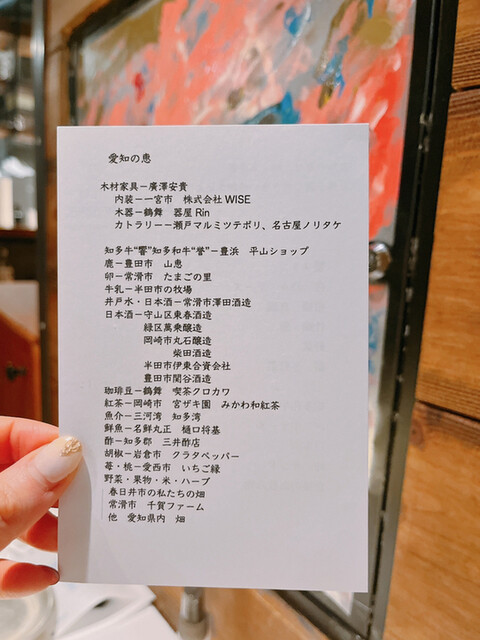 愛知の恵
木材家具－廣澤安貴
内装－一宮市　株式会社 WISE
木器－鶴舞　器屋 Rin
カトラリー－瀬戸マルミツテポリ、名古屋ノリタケ
知多牛“響”知多和牛“誉”－豊浜　平山ショップ
鹿－豊田市　山恵
卵－常滑市　たまごの里
牛乳－半田市の牧場
井戸水・日本酒－常滑市澤田酒造
日本酒－守山区東春酒造
緑区萬乗醸造
岡崎市丸石醸造
柴田酒造
半田市伊東合資会社
豊田市関谷酒造
珈琲豆－鶴舞　喫茶クロカワ
紅茶－岡崎市　宮ザキ園　みかわ和紅茶
魚介－三河湾　知多湾
鮮魚－名鮮丸正　樋口将基
酢－知多郡　三井酢店
胡椒－岩倉市　クラタペッパー
苺・桃－愛西市　いちご縁
野菜・果物・米・ハーブ
春日井市の私たちの畑
常滑市　千賀ファーム
他　愛知県内　畑